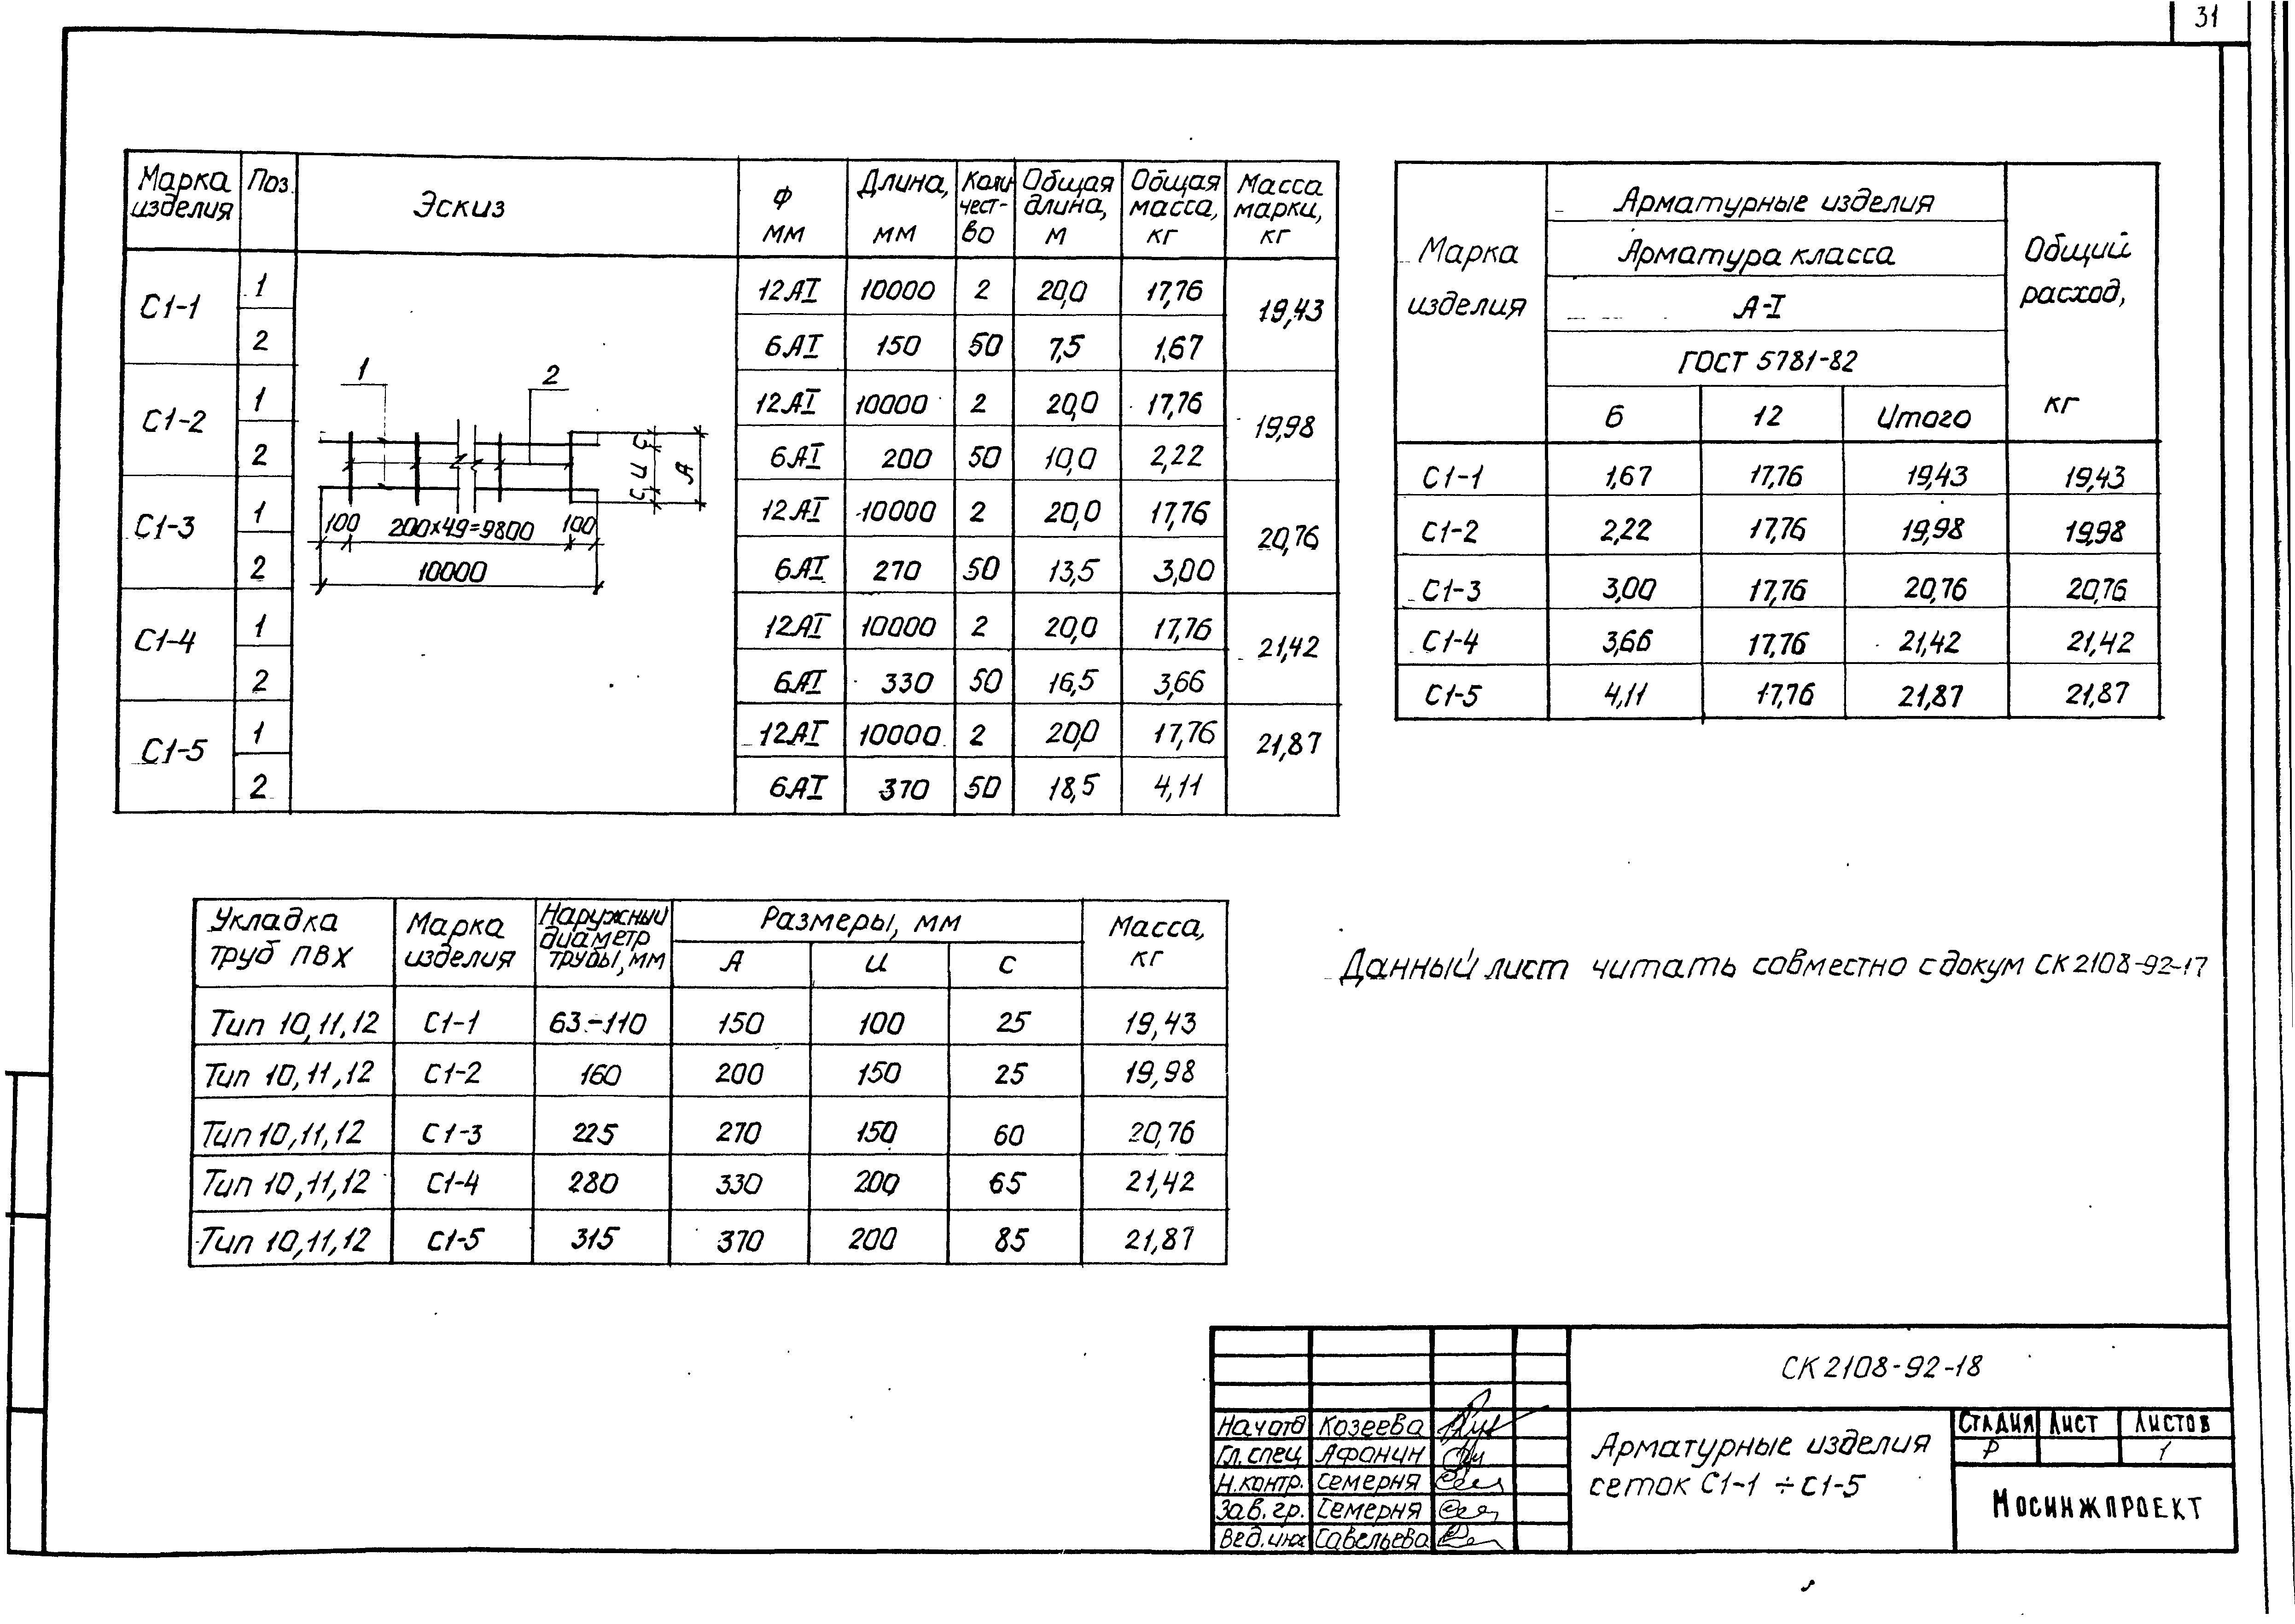 31
Марка изделия Поз. Эскиз Ф мм Длина, мм Количество Общая длина, м Общая масса, кг Масса марки, кг
С1-1 1 12АI 10000 2 20,0 17,76 19,43
2 6АI 150 50 7,5 1,67
С1-2 1 12АI 10000 2 20,0 17,76 19,98
2 6АI 200 50 10,0 2,22
С1-3 1 12АI 10000 2 20,0 17,76 20,76
2 6АI 270 50 13,5 3,00
С1-4 1 12АI 10000 2 20,0 17,76 21,42
2 6АI 330 50 16,5 3,66
С1-5 1 12АI 10000 2 20,0 17,76 21,87
2 6АI 370 50 18,5 4,11
1 2
С И С А
100 200х49=9800 100
10000
Марка изделия Арматурные изделия Общий расход, кг
Арматура класса
А-I
ГОСТ 5781-82
6 12 Итого
С1-1 1,67 17,76 19,43 19,43
С1-2 2,22 17,76 19,98 19,98
С1-3 3,00 17,76 20,76 20,76
С1-4 3,66 17,76 21,42 21,42
С1-5 4,11 17,76 21,87 21,87
Укладка труб ПВХ Марка изделия Наружный диаметр трубы, мм Размеры, мм Масса, кг
А И С
Тип 10,11,12 С1-1 63-110 150 100 25 19,43
Тип 10,11,12 С1-2 160 200 150 25 19,98
Тип 10,11,12 С1-3 225 270 150 60 20,76
Тип 10,11,12 С1-4 280 330 200 65 21,42
Тип 10,11,12 С1-5 315 370 200 85 21,87
Данный лист читать совместно с докум СК 2108-92-17
СК 2108-92-18
Нач отд Козеева
Гл. спец Афонин
Н. контр. Семерня
Зав. гр. Семерня
Вед. инж Савельева
Арматурные изделия
сеток С1-1 ÷ С1-5
Стадия Лист Листов
Р 1
Мосинжпроект